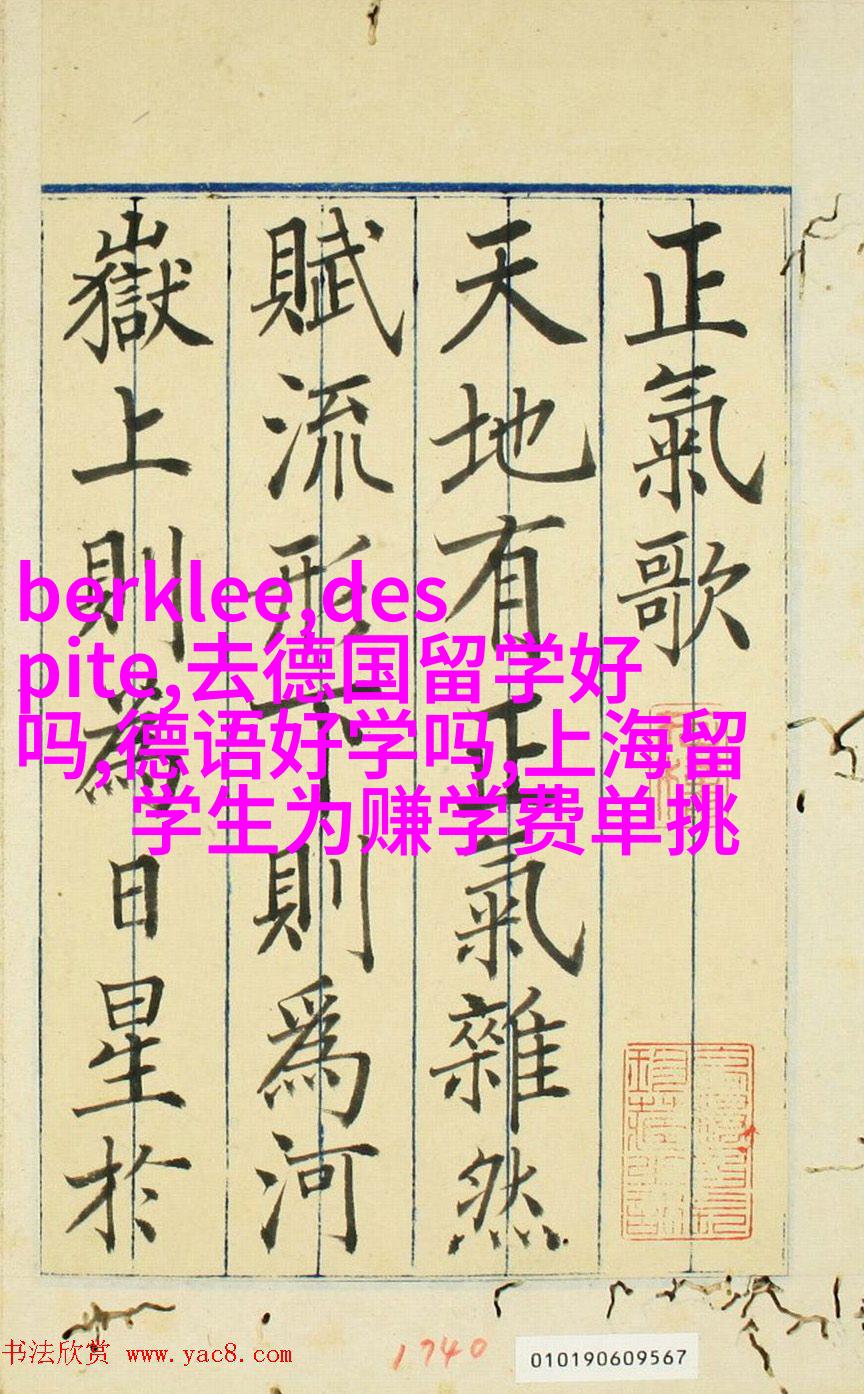 正氣歌
天地有正氣雜然
賦流形下則為河
嶽上則為日星於
berklee,des
pite,去德国留学好
吗,德语好学吗,上海留
学生为赚学费单挑
书法欣赏 www.yac8.com
1740
010190609567